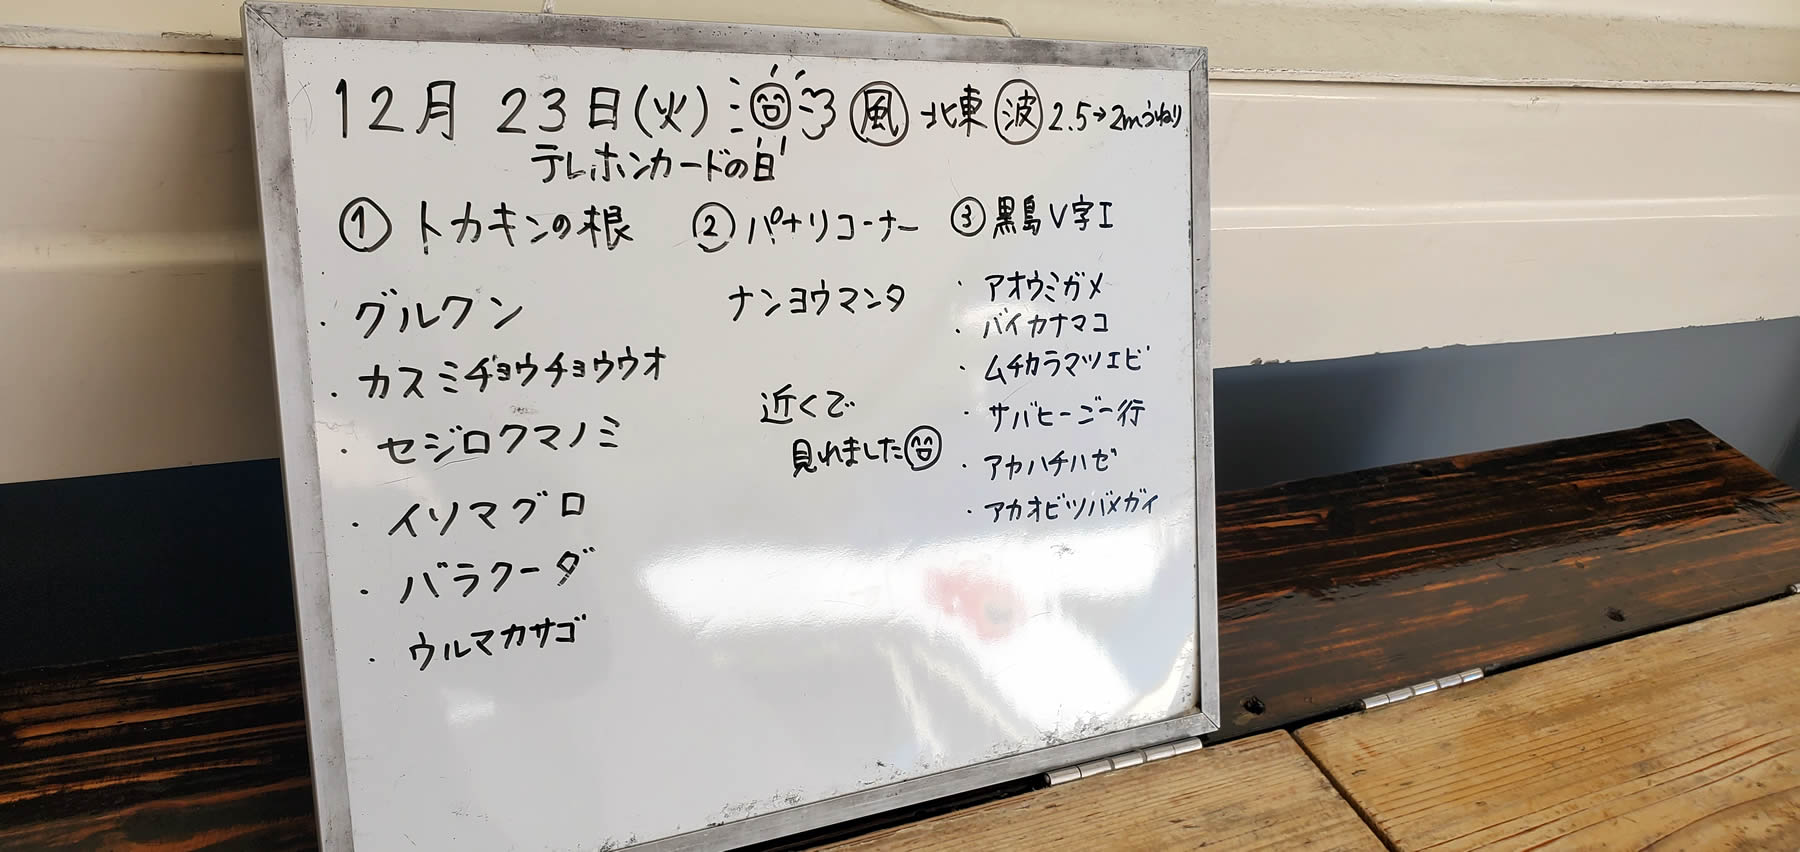 12月 23日(火) 風 北東 波 2.5→2mうねり
テレホンカードの日
① トカキンの根
・グルクン
・カスミチョウチョウウオ
・セジロクマノミ
・イソマグロ
・バラクーダ
・ウルマカサゴ
② パナリコーナー
ナンヨウマンタ
近くで
見れました
③ 黒島V字I
・アオウミガメ
・バイカナマコ
・ムチカラマツエビ
・サバヒーご一行
・アカハチハゼ
・アカオビツバメガイ